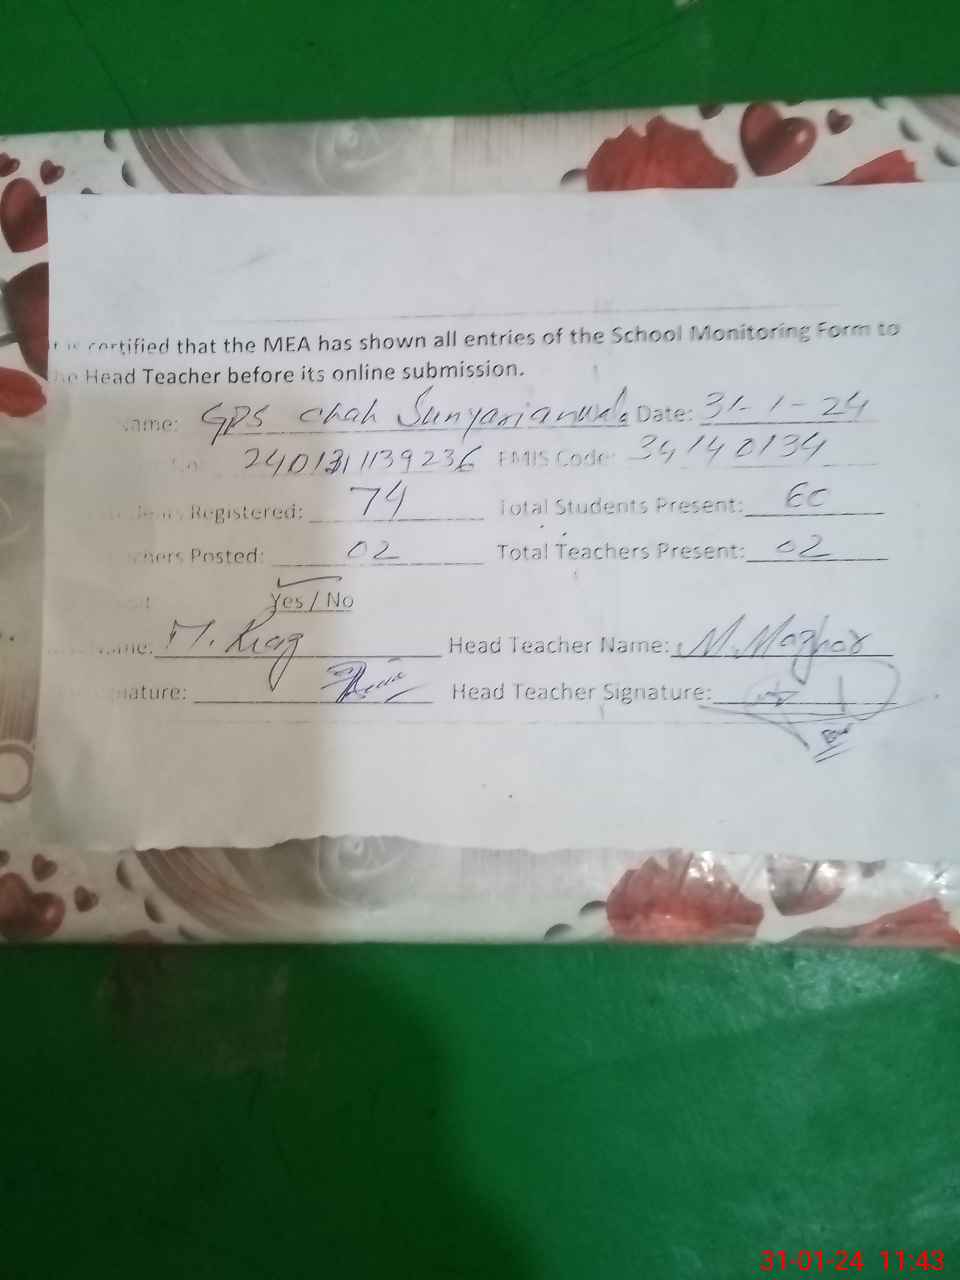 certified that the MEA has shown all entries of the School Monitoring Form to
Head Teacher before its online submission.
Name: GPS Chah Sunyarianwala Date: 31-1-24
240131139236 EMIS Code: 34140134
Registered: 74 Total Students Present: 60
Posted: 02 Total Teachers Present: 02
Yes / No
M. Riaz Head Teacher Name: M. Mazhar
Head Teacher Signature:
31-01-24 11:43